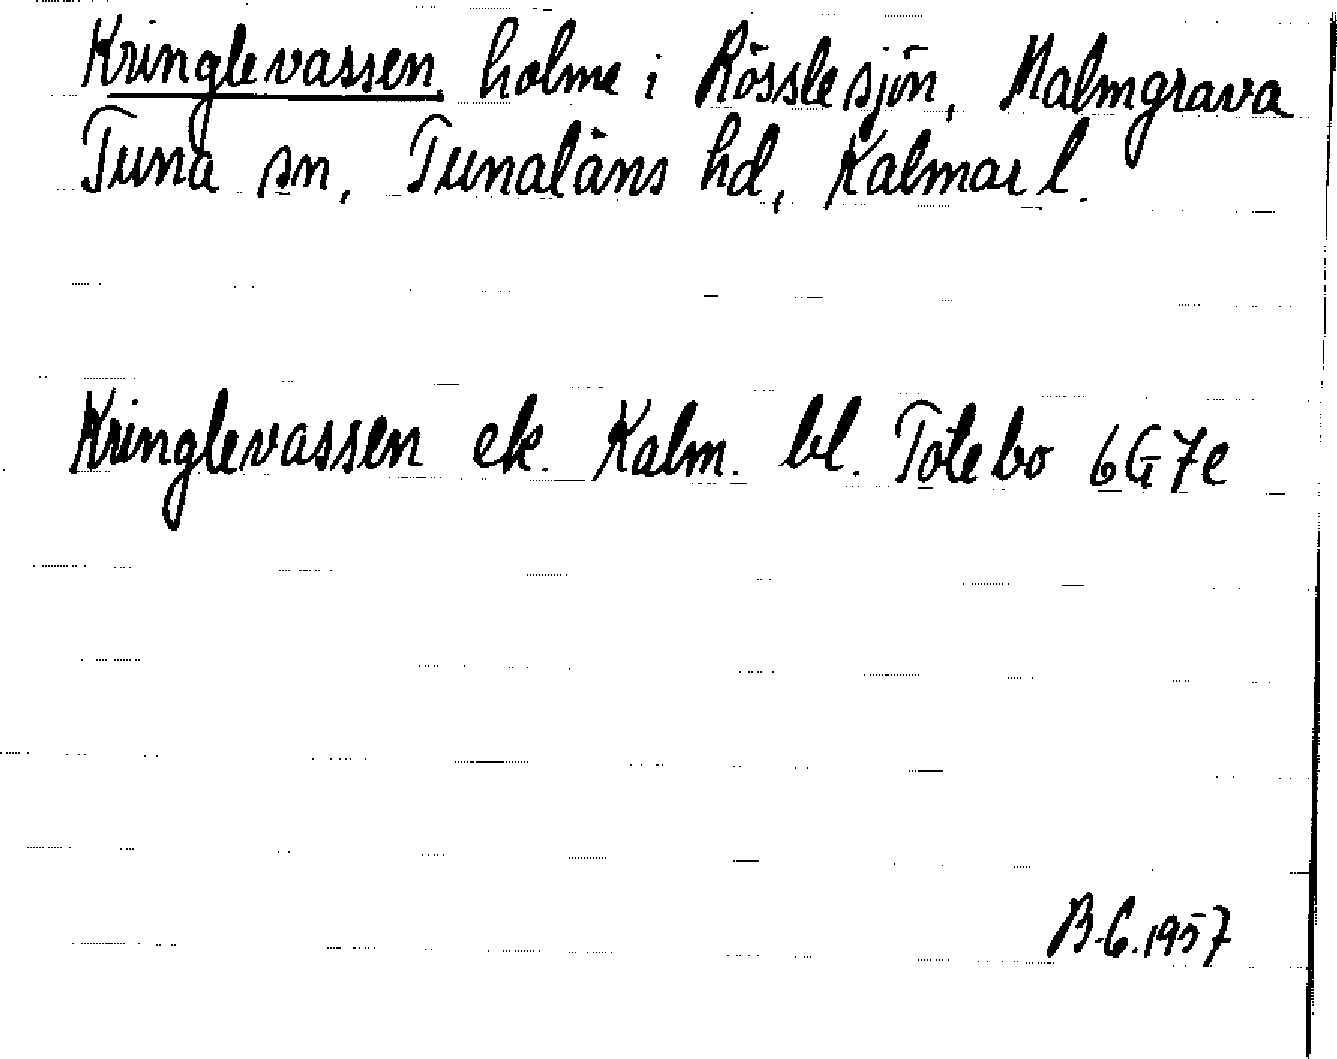 Kringlevassen, holme i Rösslesjön, Malmgrava
Tuna sn, Tunaläns hd, Kalmar l.
Kringlevassen ek. Kalm. bl. Totebo 6G7e
B-C. 1957